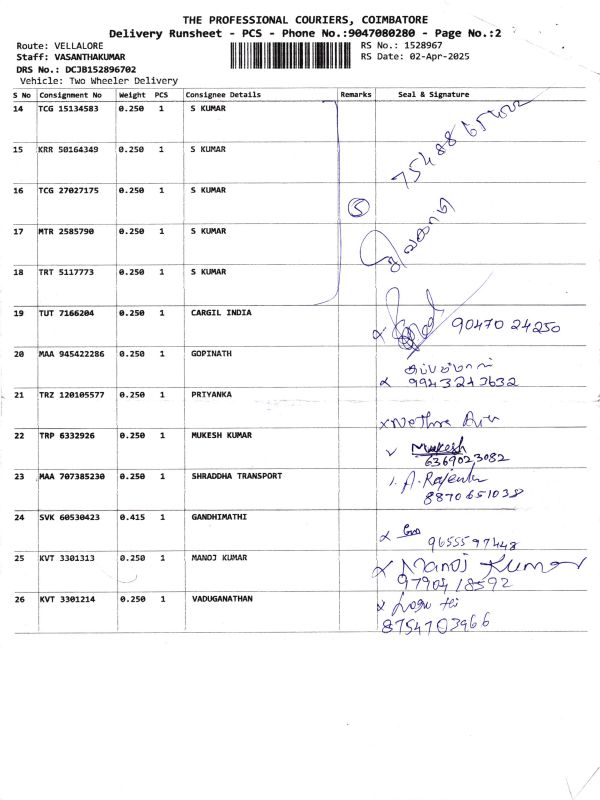 THE PROFESSIONAL COURIERS, COIMBATORE
Delivery Runsheet - PCS - Phone No.:9047080280 - Page No.:2
Route: VELLALORE RS No.: 1528967
Staff: VASANTHAKUMAR RS Date: 02-Apr-2025
DRS No.: DCJB152896702
Vehicle: Two Wheeler Delivery
S No Consignment No Weight PCS Consignee Details Remarks Seal & Signature
14 TCG 15134583 0.250 1 S KUMAR
15 KRR 50164349 0.250 1 S KUMAR
16 TCG 27027175 0.250 1 S KUMAR
5
17 MTR 2585790 0.250 1 S KUMAR
18 TRT 5117773 0.250 1 S KUMAR
19 TUT 7166204 0.250 1 CARGIL INDIA
90470 24250
20 MAA 945422286 0.250 1 GOPINATH
9943243632
21 TRZ 120105577 0.250 1 PRIYANKA
Nethra
22 TRP 6332926 0.250 1 MUKESH KUMAR
Mukesh
6369023082
23 MAA 707385230 0.250 1 SHRADDHA TRANSPORT
A. Rajendra
8870651038
24 SVK 60530423 0.415 1 GANDHIMATHI
9655597448
25 KVT 3301313 0.250 1 MANOJ KUMAR
Manoj Kumar
9790418592
26 KVT 3301214 0.250 1 VADUGANATHAN
8754703966